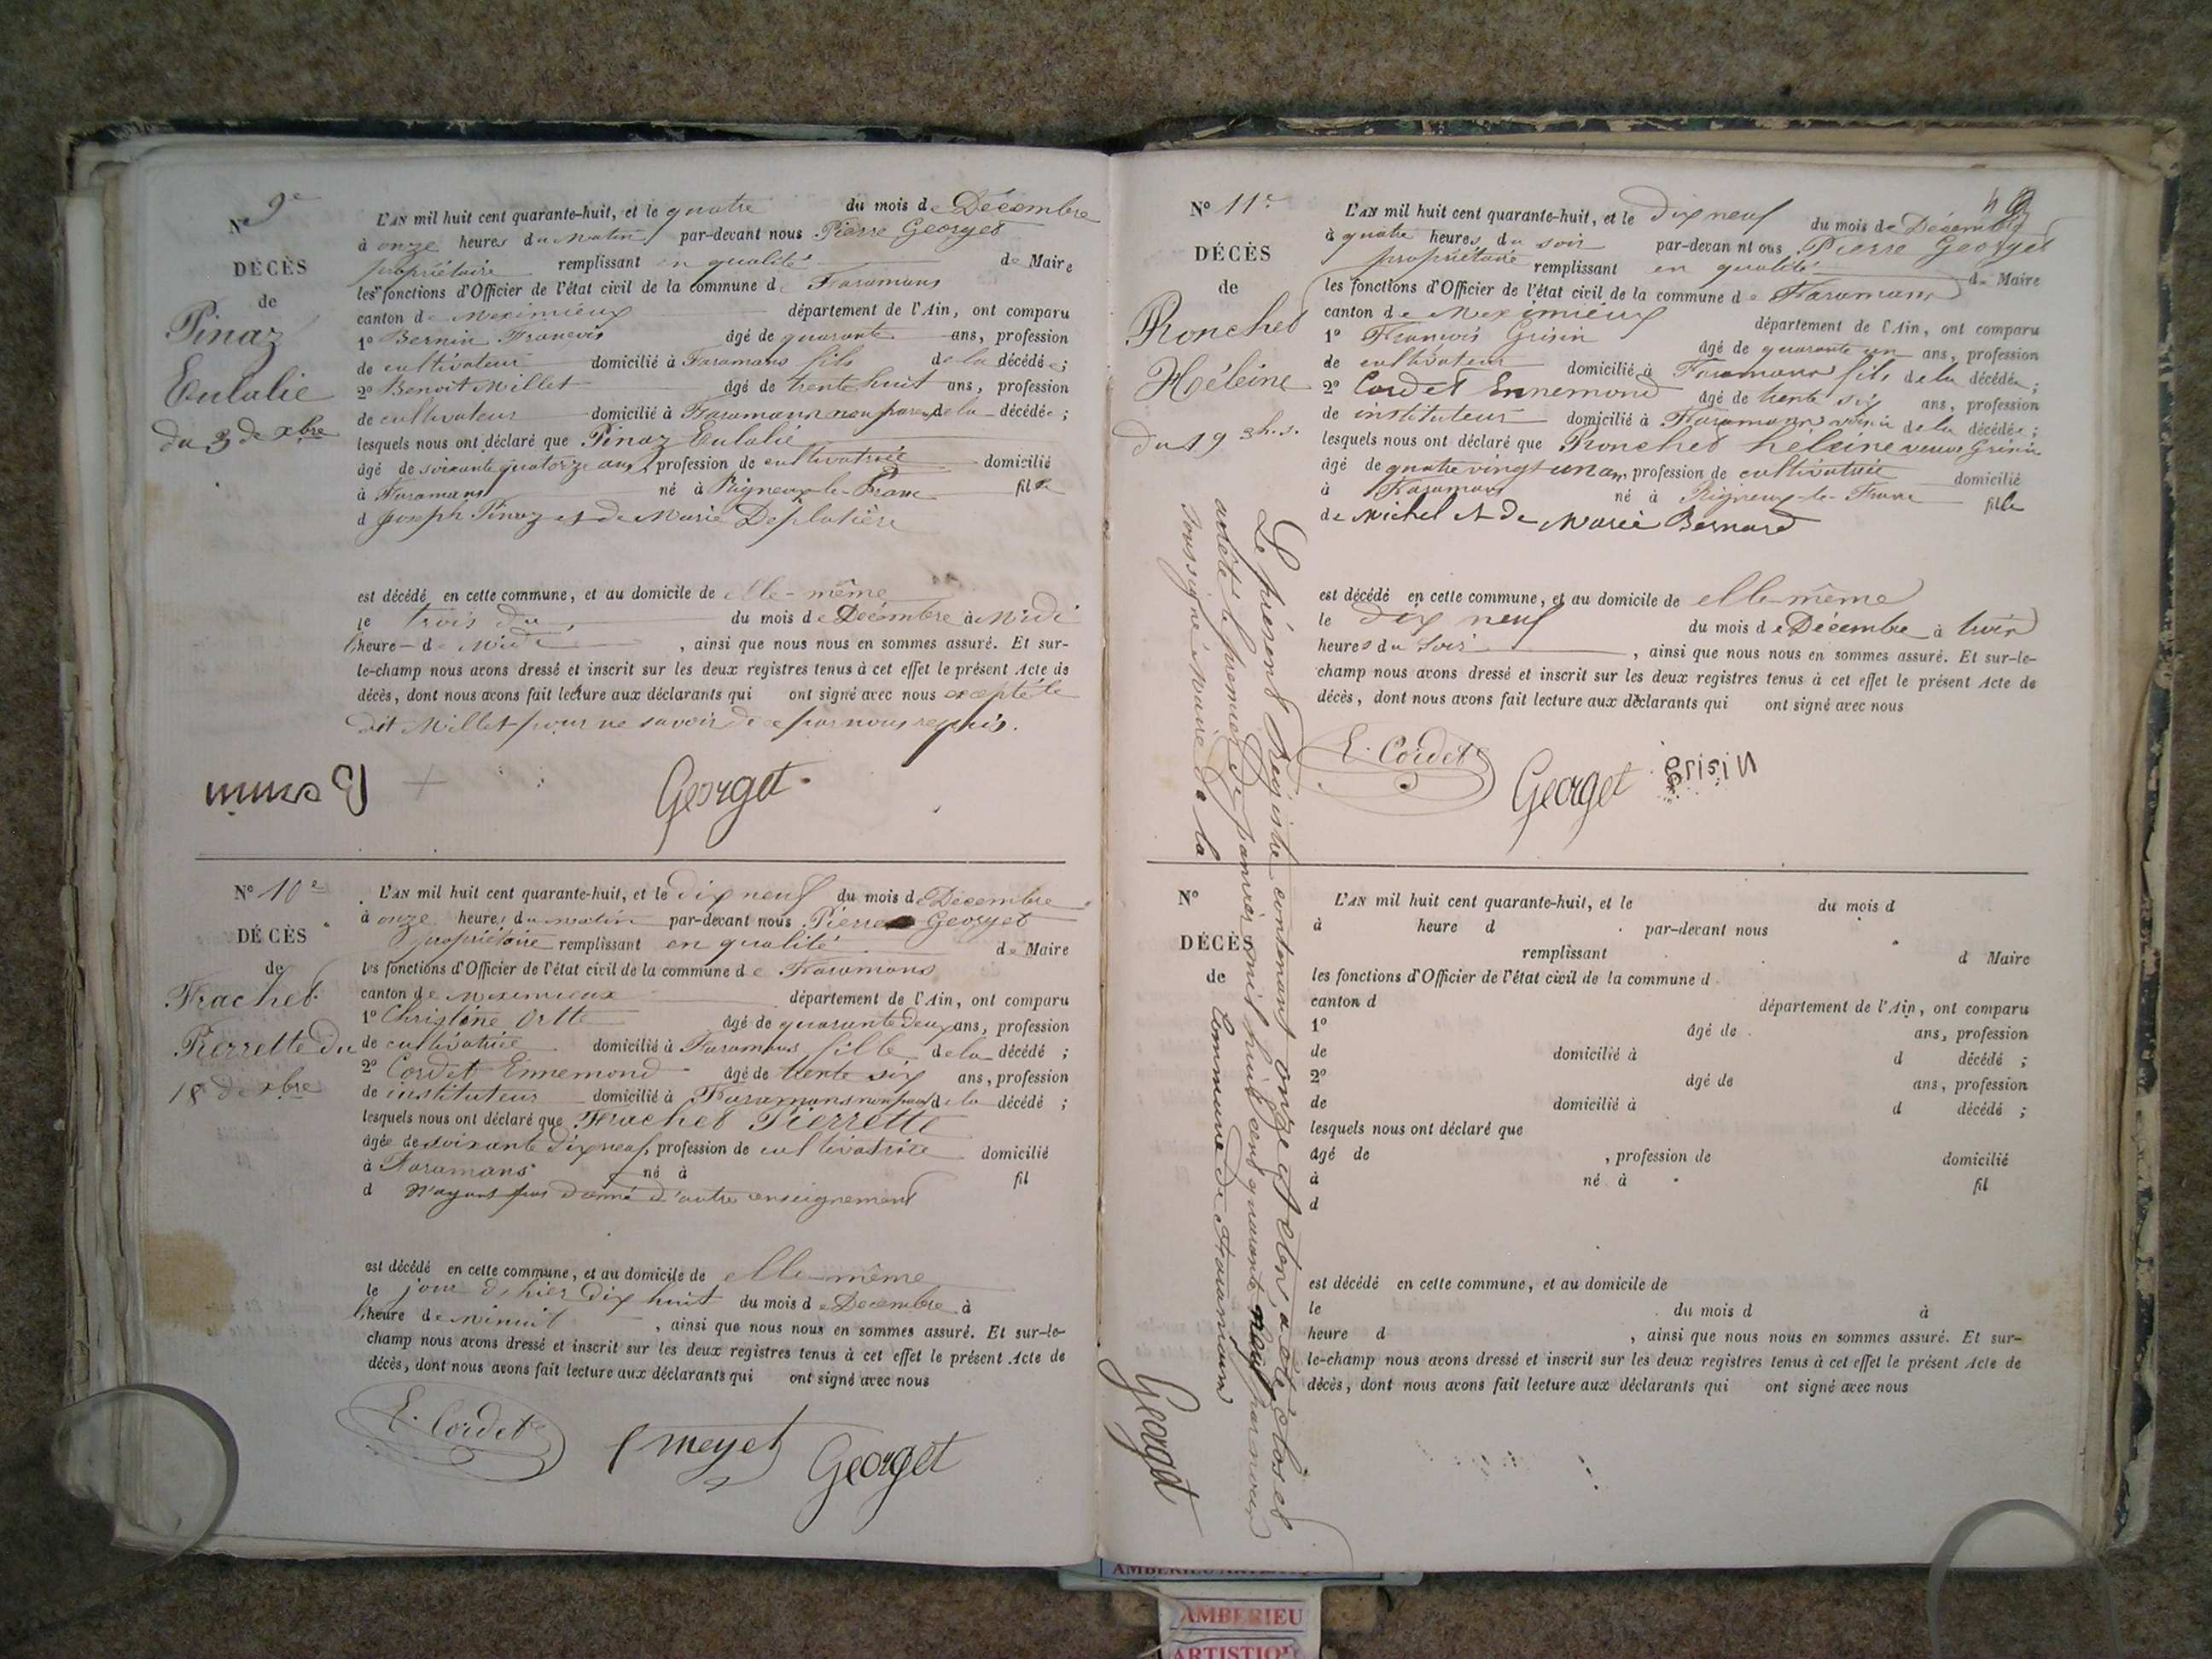 N° 9e
DÉCÈS
de
Pinaz
Eulalie
du 3 de xbre
L'AN mil huit cent quarante-huit, et le quatre du mois de Décembre
à onze heures du matin par-devant nous Pierre Georget
propriétaire remplissant en qualité de Maire
les fonctions d'Officier de l'état civil de la commune de Faramans
canton de Meximieux département de l'Ain, ont comparu
1° Bernin Francois âgé de quarante ans, profession
de cultivateur domicilié à Faramans fils de la décédée;
2° Benoit Millet âgé de trente huit ans, profession
de cultivateur domicilié à Faramans non parent de la décédée;
lesquels nous ont déclaré que Pinaz Eulalie
âgé de soixante quatorze ans, profession de cultivatrice domicilié
à Faramans né à Rigneux-le-Franc fille
d Joseph Pinaz et de Marie Deplatière
est décédé en cette commune, et au domicile de elle-même
le trois du du mois de Décembre à Midi
l'heure de Midi, ainsi que nous nous en sommes assuré. Et sur-
le-champ nous avons dressé et inscrit sur les deux registres tenus à cet effet le présent Acte de
décès, dont nous avons fait lecture aux déclarants qui ont signé avec nous excepté le
dit Millet pour ne savoir de ce par nous requis.
Bernin + Georget
N° 10e
DÉCÈS
de
Frachet
Pierrette du
18 de xbre
L'AN mil huit cent quarante-huit, et le dix neuf du mois de Décembre
à onze heures du matin par-devant nous Pierre Georget
propriétaire remplissant en qualité de Maire
les fonctions d'Officier de l'état civil de la commune de Faramans
canton de Meximieux département de l'Ain, ont comparu
1° Christine Ortte âgé de quarante deux ans, profession
de cultivatrice domicilié à Faramans fille de la décédé;
2° Cordet Ennemond âgé de trente six ans, profession
de instituteur domicilié à Faramans non parent de la décédé;
lesquels nous ont déclaré que Frachet Pierrette
âgée de soixante dix neuf, profession de cultivatrice domicilié
à Faramans né à fil
d N'ayant pas donné d'autre enseignement
est décédé en cette commune, et au domicile de elle-même
le jour d'hier dix huit du mois de Décembre à
l'heure de minuit, ainsi que nous nous en sommes assuré. Et sur-le-
champ nous avons dressé et inscrit sur les deux registres tenus à cet effet le présent Acte de
décès, dont nous avons fait lecture aux déclarants qui ont signé avec nous
E. Cordet meyet Georget
N° 11e
DÉCÈS
de
Ronchet
Héleine
du 19
L'AN mil huit cent quarante-huit, et le Dix neuf du mois de Décembre
à quatre heures du soir par-devan nt ous Pierre Georget
propriétaire remplissant en qualité de Maire
les fonctions d'Officier de l'état civil de la commune de Faramans
canton de Meximieux département de l'Ain, ont comparu
1° Francois Grisin âgé de quarante un ans, profession
de cultivateur domicilié à Faramans fils de la décédée;
2° Cordet Ennemond âgé de trente six ans, profession
de instituteur domicilié à Faramans voisin de la décédée;
lesquels nous ont déclaré que Ronchet héleine veuve Grisin
âgé de quatre vingt un an, profession de cultivatrice domicilié
à Faramans né à Rigneux-le-Franc fille
de Michel et de Marie Bernard
est décédé en cette commune, et au domicile de elle-même
le dix neuf du mois de Décembre à trois
heures du soir, ainsi que nous nous en sommes assuré. Et sur-le-
champ nous avons dressé et inscrit sur les deux registres tenus à cet effet le présent Acte de
décès, dont nous avons fait lecture aux déclarants qui ont signé avec nous
E. Cordet Georget Grisin
Le présent Registre contenant onze actes, a été clos et
arrêté le premier de janvier mil huit cent quarante neuf par nous
soussigné Maire de la
Commune de Faramans
Georget
N°
DÉCÈS
de
L'AN mil huit cent quarante-huit, et le du mois d
à heure d par-devant nous
remplissant d Maire
les fonctions d'Officier de l'état civil de la commune d
canton d département de l'Ain, ont comparu
1° âgé de ans, profession
de domicilié à d décédé;
2° âgé de ans, profession
de domicilié à d décédé;
lesquels nous ont déclaré que
âgé de, profession de domicilié
à né à fil
d
est décédé en cette commune, et au domicile de
le du mois d à
heure d, ainsi que nous nous en sommes assuré. Et sur-
le-champ nous avons dressé et inscrit sur les deux registres tenus à cet effet le présent Acte de
décès, dont nous avons fait lecture aux déclarants qui ont signé avec nous
AMBERIEU
ARTISTIQUE